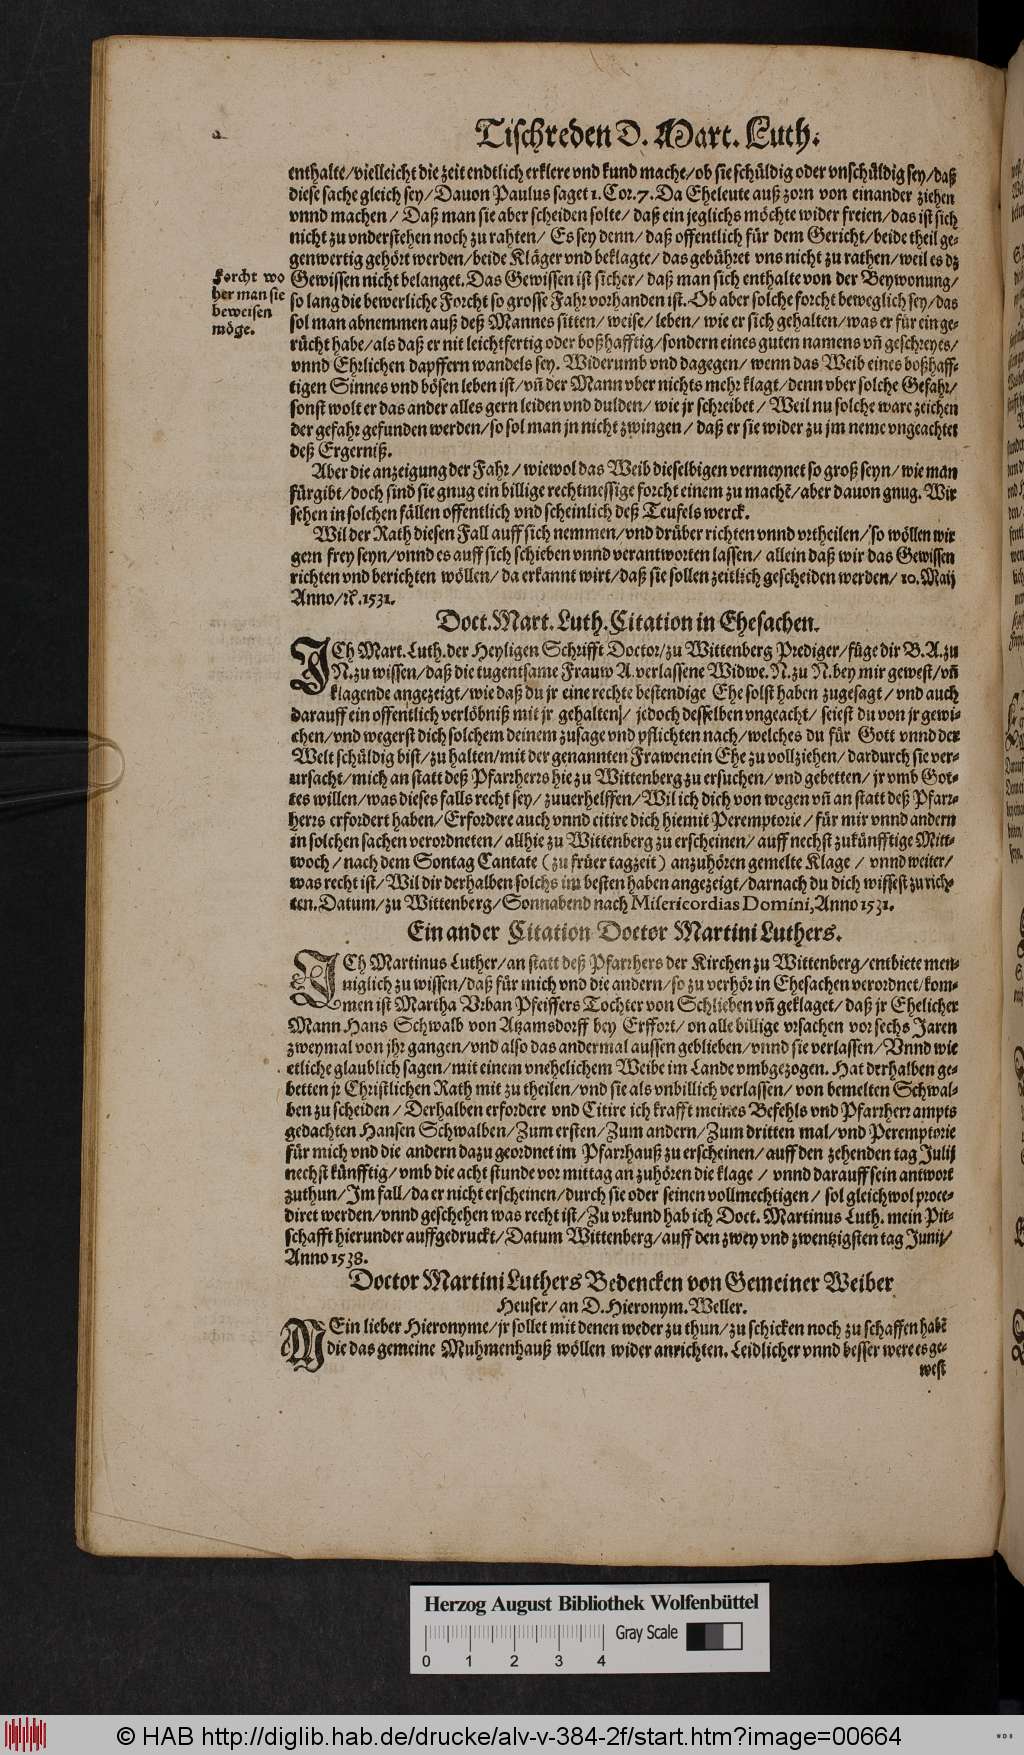 Tischreden D. Mart. Luth.
enthalte/vielleicht die zeit endtlich erklere vnd kund mache/ob sie schüldig oder vnschüldig sey/daß
diese sache gleich sey/Dauon Paulus saget 1. Cor. 7. Da Eheleute auß zorn von einander ziehen
vnnd machen/Daß man sie aber scheiden solte/daß ein jeglichs möchte wider freien/das ist sich
nicht zu vnderstehen noch zu rahten/Es sey denn/daß offentlich für dem Gericht/beide theil ge-
genwertig gehört werden/beide Kläger vnd beklagte/das gebühret vns nicht zu rathen/weil es dz
Forcht wo
her man sie
beweisen
möge.
Gewissen nicht belanget. Das Gewissen ist sicher/daß man sich enthalte von der Beywonung/
so lang die bewerliche Forcht so grosse Fahr vorhanden ist. Ob aber solche forcht beweglich sey/das
sol man abnemmen auß deß Mannes sitten/weise/leben/wie er sich gehalten/was er für ein ge-
rücht habe/als daß er nit leichtfertig oder boßhafftig/sondern eines guten namens vñ geschreyes/
vnnd Ehrlichen dapffern wandels sey. Widerumb vnd dagegen/wenn das Weib eines boßhaff-
tigen Sinnes vnd bösen leben ist/vñ der Mann vber nichts mehr klagt/denn vber solche Gefahr/
sonst wolt er das ander alles gern leiden vnd dulden/wie jr schreibet/Weil nu solche ware zeichen
der gefahr gefunden werden/so sol man jn nicht zwingen/daß er sie wider zu jm neme vngeachtet
deß Ergerniß.
Aber die anzeigung der Fahr/wiewol das Weib dieselbigen vermeynet so groß seyn/wie man
fürgibt/doch sind sie gnug ein billige rechtmessige forcht einem zu machē/aber dauon gnug. Wir
sehen in solchen fällen offentlich vnd scheinlich deß Teufels werck.
Wil der Rath diesen Fall auff sich nemmen/vnd drüber richten vnnd vrtheilen/so wöllen wir
gern frey seyn/vnnd es auff sich schieben vnnd verantworten lassen/allein daß wir das Gewissen
richten vnd berichten wöllen/da erkannt wirt/daß sie sollen zeitlich gescheiden werden/10. Maij
Anno/ꝛc. 1531.
Doct. Mart. Luth. Citation in Ehesachen.
ICh Mart. Luth. der Heyligen Schrifft Doctor/zu Wittenberg Prediger/füge dir B. A. zu
N. zu wissen/daß die tugentsame Frauw A. verlassene Widwe. N. zu N. bey mir gewest/vñ
klagende angezeigt/wie daß du jr eine rechte bestendige Ehe solst haben zugesagt/vnd auch
darauff ein offentlich verlöbniß mit jr gehalten/jedoch desselben vngeacht/seiest du von jr gewi-
chen/vnd wegerst dich solchem deinem zusage vnd pflichten nach/welches du für Gott vnnd der
Welt schüldig bist/zu halten/mit der genannten Frawen ein Ehe zu vollziehen/dardurch sie ver-
ursacht/mich an statt deß Pfarrherrs hie zu Wittenberg zu ersuchen/vnd gebetten/jr vmb Got-
tes willen/was dieses falls recht sey/zuuerhelffen/Wil ich dich von wegen vñ an statt deß Pfarr-
herrs erfordert haben/Erfordere auch vnnd citire dich hiemit Peremptorie/für mir vnnd andern
in solchen sachen verordneten/allhie zu Wittenberg zu erscheinen/auff nechst zukünfftige Mitt-
woch/nach dem Sontag Cantate (zu früer tagzeit) anzuhören gemelte Klage/vnnd weiter/
was recht ist/Wil dir derhalben solchs im besten haben angezeigt/darnach du dich wissest zu rich-
ten. Datum/zu Wittenberg/Sonnabend nach Misericordias Domini, Anno 1531.
Ein ander Citation Doctor Martini Luthers.
ICh Martinus Luther/an statt deß Pfarrhers der Kirchen zu Wittenberg/entbiete men-
niglich zu wissen/daß für mich vnd die andern/so zu verhör in Ehesachen verordnet/kom-
men ist Martha Vrban Pfeiffers Tochter von Schlieben vñ geklaget/daß jr Ehelicher
Mann Hans Schwalb von Atzamsdorff bey Erffort/on alle billige vrsachen vor sechs Jaren
zweymal von jhr gangen/vnd also das andermal aussen geblieben/vnnd sie verlassen/Vnnd wie
etliche glaublich sagen/mit einem vnehelichem Weibe im Lande vmbgezogen. Hat derhalben ge-
betten jr Christlichen Rath mit zu theilen/vnd sie als vnbillich verlassen/von bemelten Schwal-
ben zu scheiden/Derhalben erfordere vnd Citire ich krafft meines Befehls vnd Pfarrherr ampts
gedachten Hansen Schwalben/Zum ersten/Zum andern/Zum dritten mal/vnd Peremptorie
für mich vnd die andern dazu geordnet im Pfarrhauß zu erscheinen/auff den zehenden tag Julij
nechst künfftig/vmb die acht stunde vor mittag an zuhören die klage/vnnd darauff sein antwort
zuthun/Im fall/da er nicht erscheinen/durch sie oder seinen vollmechtigen/sol gleichwol proce-
diret werden/vnnd geschehen was recht ist/Zu vrkund hab ich Doct. Martinus Luth. mein Pit-
schafft hierunder auffgedruckt/Datum Wittenberg/auff den zwey vnd zwentzigsten tag Junij/
Anno 1538.
Doctor Martini Luthers Bedencken von Gemeiner Weiber
Heuser/an D. Hieronym. Weller.
MEin lieber Hieronyme/jr sollet mit denen weder zu thun/zu schicken noch zu schaffen habē
die das gemeine Muhmenhauß wöllen wider anrichten. Leidlicher vnnd besser were es ge-
west
Herzog August Bibliothek Wolfenbüttel
Gray Scale
0 1 2 3 4
© HAB http://diglib.hab.de/drucke/alv-v-384-2f/start.htm?image=00664